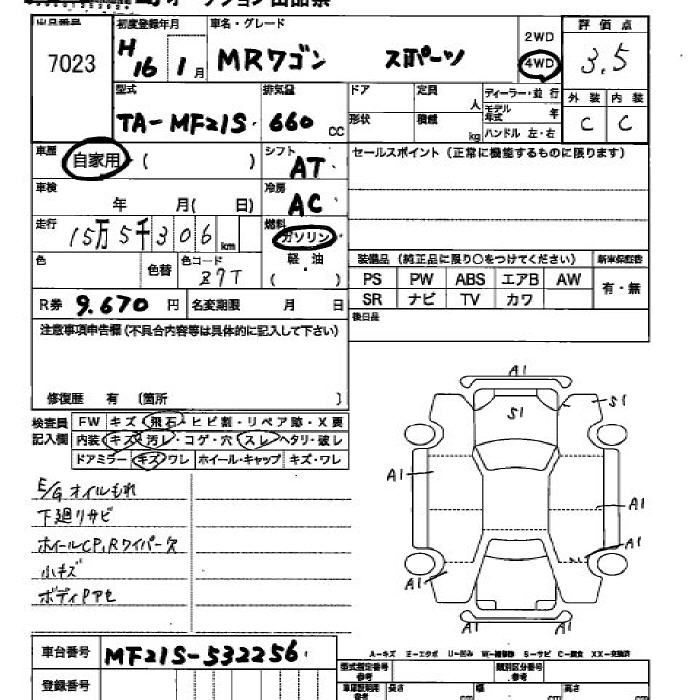 出品番号 初度登録年月 車名・グレード 2WD 評価点
7023 H16 1月 MRワゴン スポーツ 4WD 3.5
型式 排気量 ドア 定員 人 ディーラー・並行 外装 内装
TA-MF21S 660 CC 形状 積載 kg モデル年式 年 ハンドル 左・右 C C
車歴 自家用 ( ) シフト AT セールスポイント (正常に機能するものに限ります)
車検 年 月( 日) 冷房 AC
走行 15万5千306km 燃料 ガソリン
色 色替 色コード Z7T 軽油 ( ) 装備品 (純正品に限り○をつけてください) 新車保証書
PS PW ABS エアB AW 有・無
R券 9.670 円 名変期限 月 日 SR ナビ TV カワ
注意事項申告欄 (不具合内容等は具体的に記入して下さい) 後日品
修復歴 有 〔箇所 〕
検査員記入欄 FW キズ・飛石・ヒビ割・リペア跡・X要
内装・キズ・汚レ・コゲ・穴・スレ・ヘタリ・破レ
ドアミラー キズ・ワレ ホイール・キャップ キズ・ワレ
E/Gオイルもれ
下廻りサビ
ホイールCP,Rワイパー欠
小キズ
ボディPアセ
A1
S1 S1
A1
A1
A1
A1
A1 A1
A-キズ E-エクボ U-凹み W-補修跡 S-サビ C-腐食 XX-交換済
車台番号 MF21S-532256 型式指定番号 参考 類別区分番号 参考
登録番号 車庫証明用 参考 長さ cm 幅 cm 高さ cm